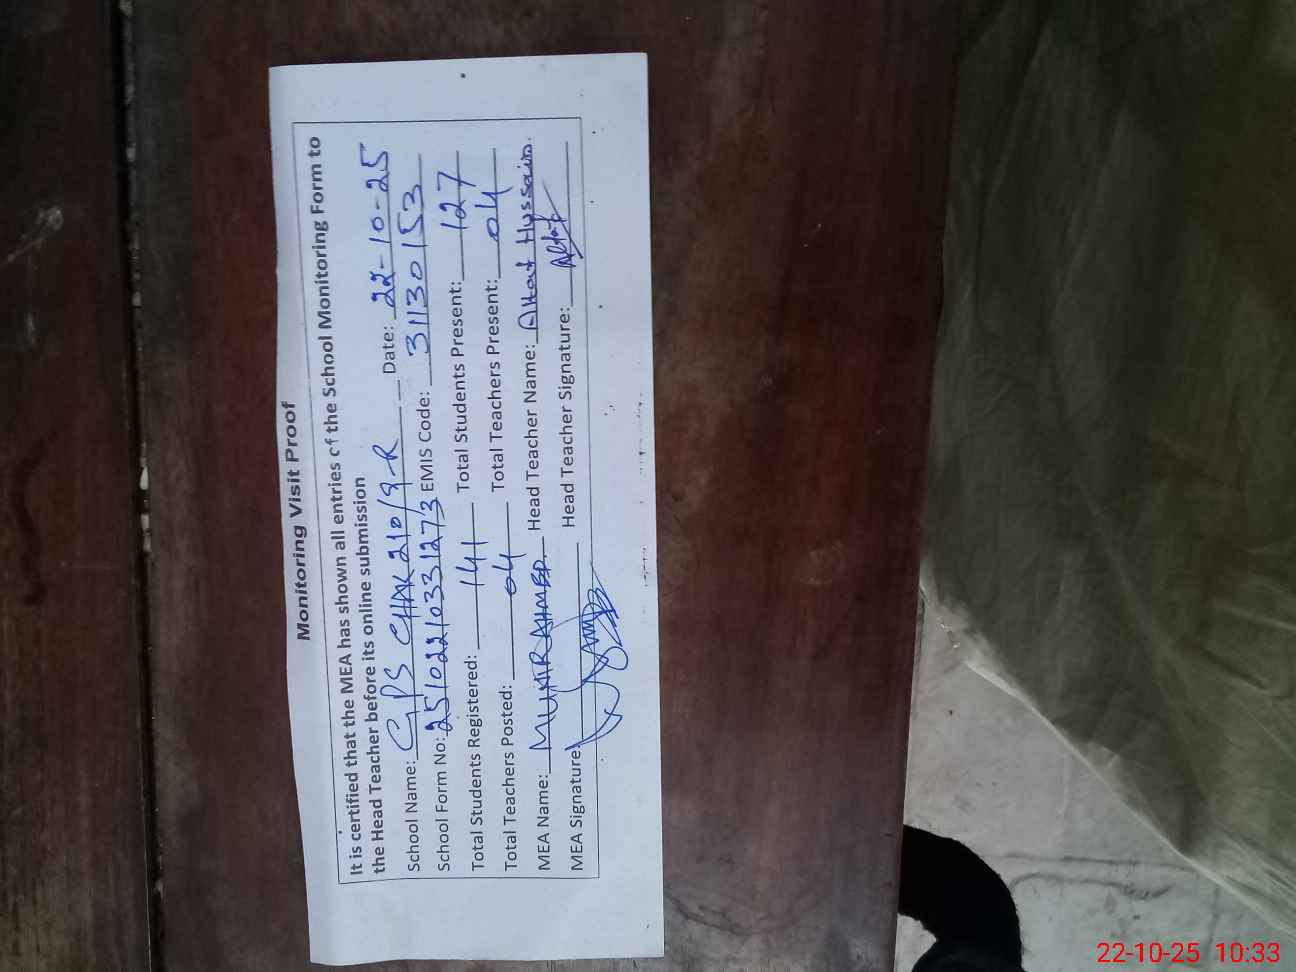 Monitoring Visit Proof
It is certified that the MEA has shown all entries of the School Monitoring Form to
the Head Teacher before its online submission
School Name: GPS CHAK 210/9-R Date: 22-10-25
School Form No: 251022103312 73 EMIS Code: 31130153
Total Students Registered: 141 Total Students Present: 127
Total Teachers Posted: 04 Total Teachers Present: 04
MEA Name: MUNIR AHMED Head Teacher Name: Altaf Hussain.
MEA Signature: Head Teacher Signature: Altaf
22-10-25 10:33